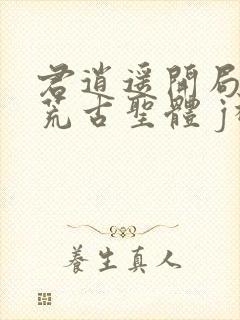 君逍遥開局
荒古聖體 j
養生真人